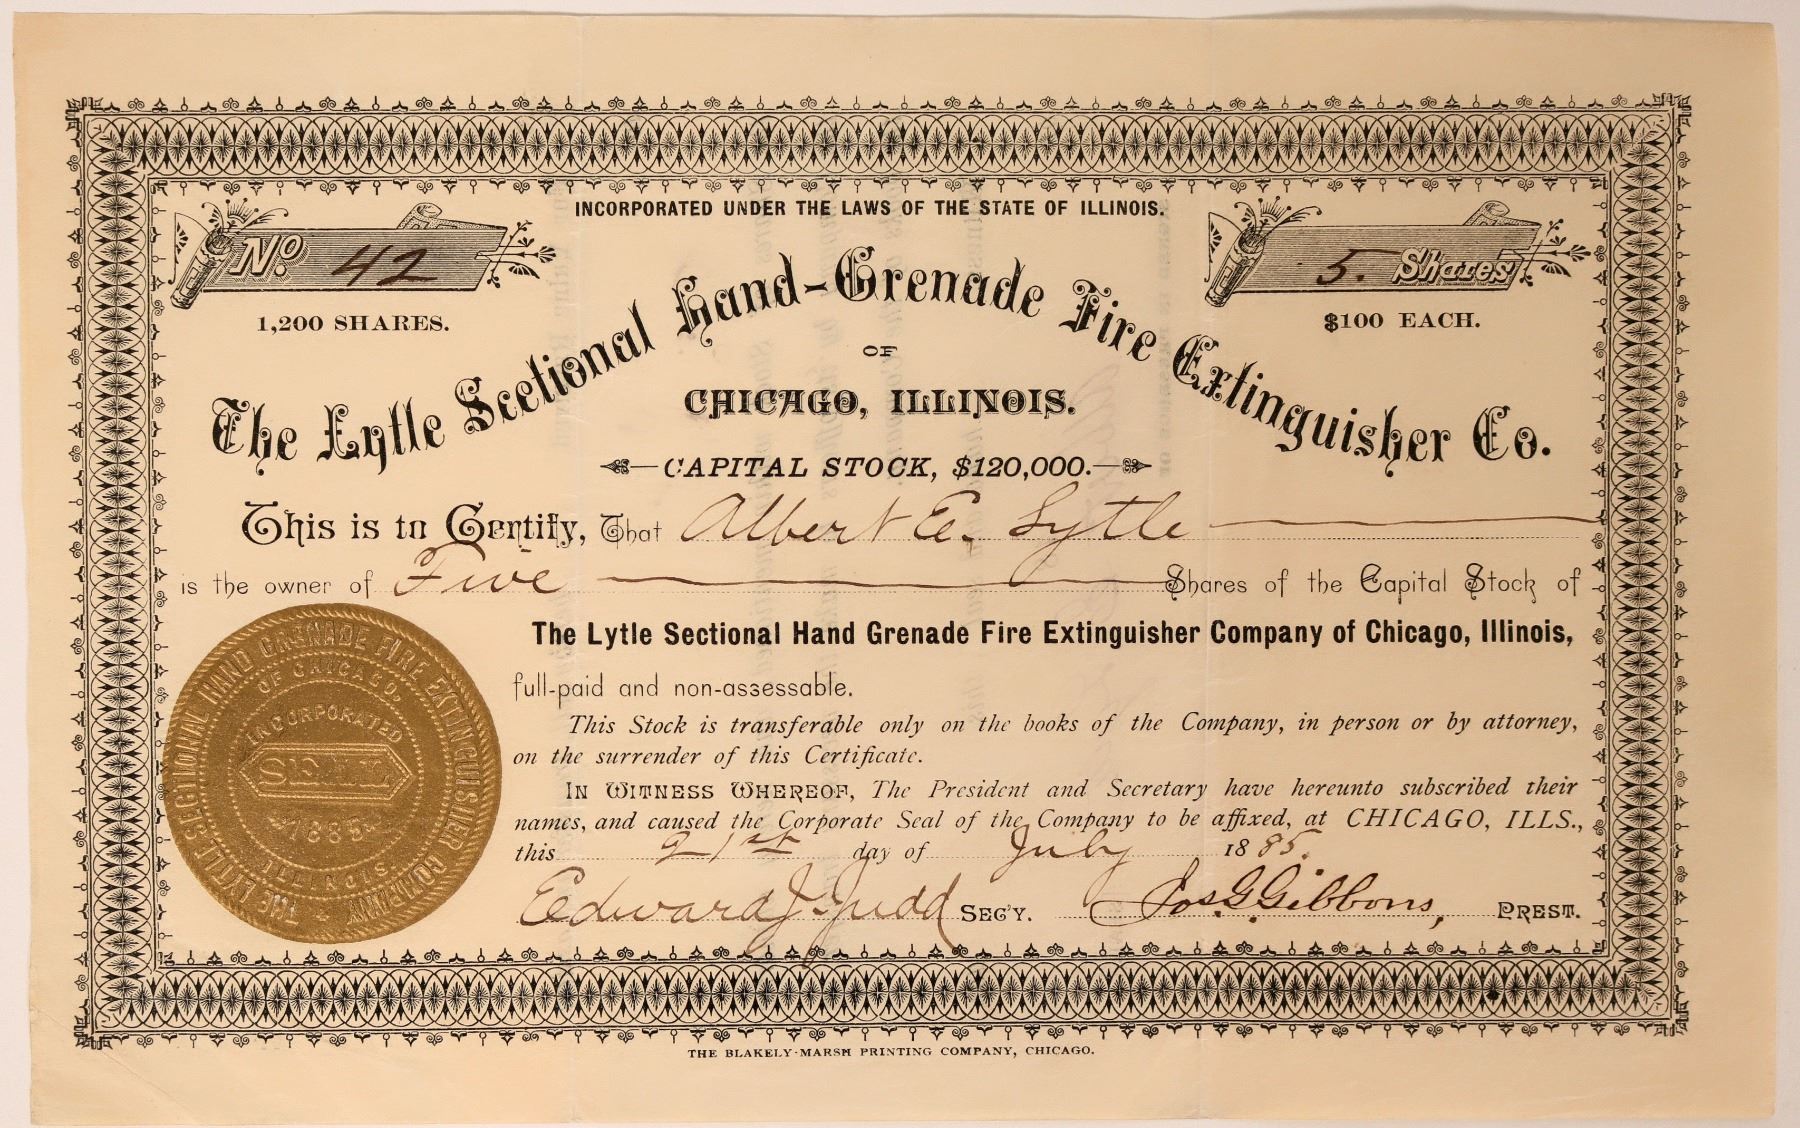 INCORPORATED UNDER THE LAWS OF THE STATE OF ILLINOIS.
No. 42
5. Shares
1,200 SHARES.
$100 EACH.
The Lytle Sectional Hand-Grenade Fire Extinguisher Co.
OF
CHICAGO, ILLINOIS.
CAPITAL STOCK, $120,000.
This is to Certify, That Albert E. Lytle
is the owner of Five Shares of the Capital Stock of
The Lytle Sectional Hand Grenade Fire Extinguisher Company of Chicago, Illinois,
full-paid and non-assessable.
This Stock is transferable only on the books of the Company, in person or by attorney,
on the surrender of this Certificate.
IN WITNESS WHEREOF, The President and Secretary have hereunto subscribed their
names, and caused the Corporate Seal of the Company to be affixed, at CHICAGO, ILLS.,
this 21st day of July 1885.
Edward J. Judd SEC'Y. Jos. G. Gibbons, PREST.
THE LYTLE SECTIONAL HAND GRENADE FIRE EXTINGUISHER COMPANY
OF CHICAGO,
INCORPORATED
SEAL
1885
ILLINOIS.
THE BLAKELY-MARSH PRINTING COMPANY, CHICAGO.